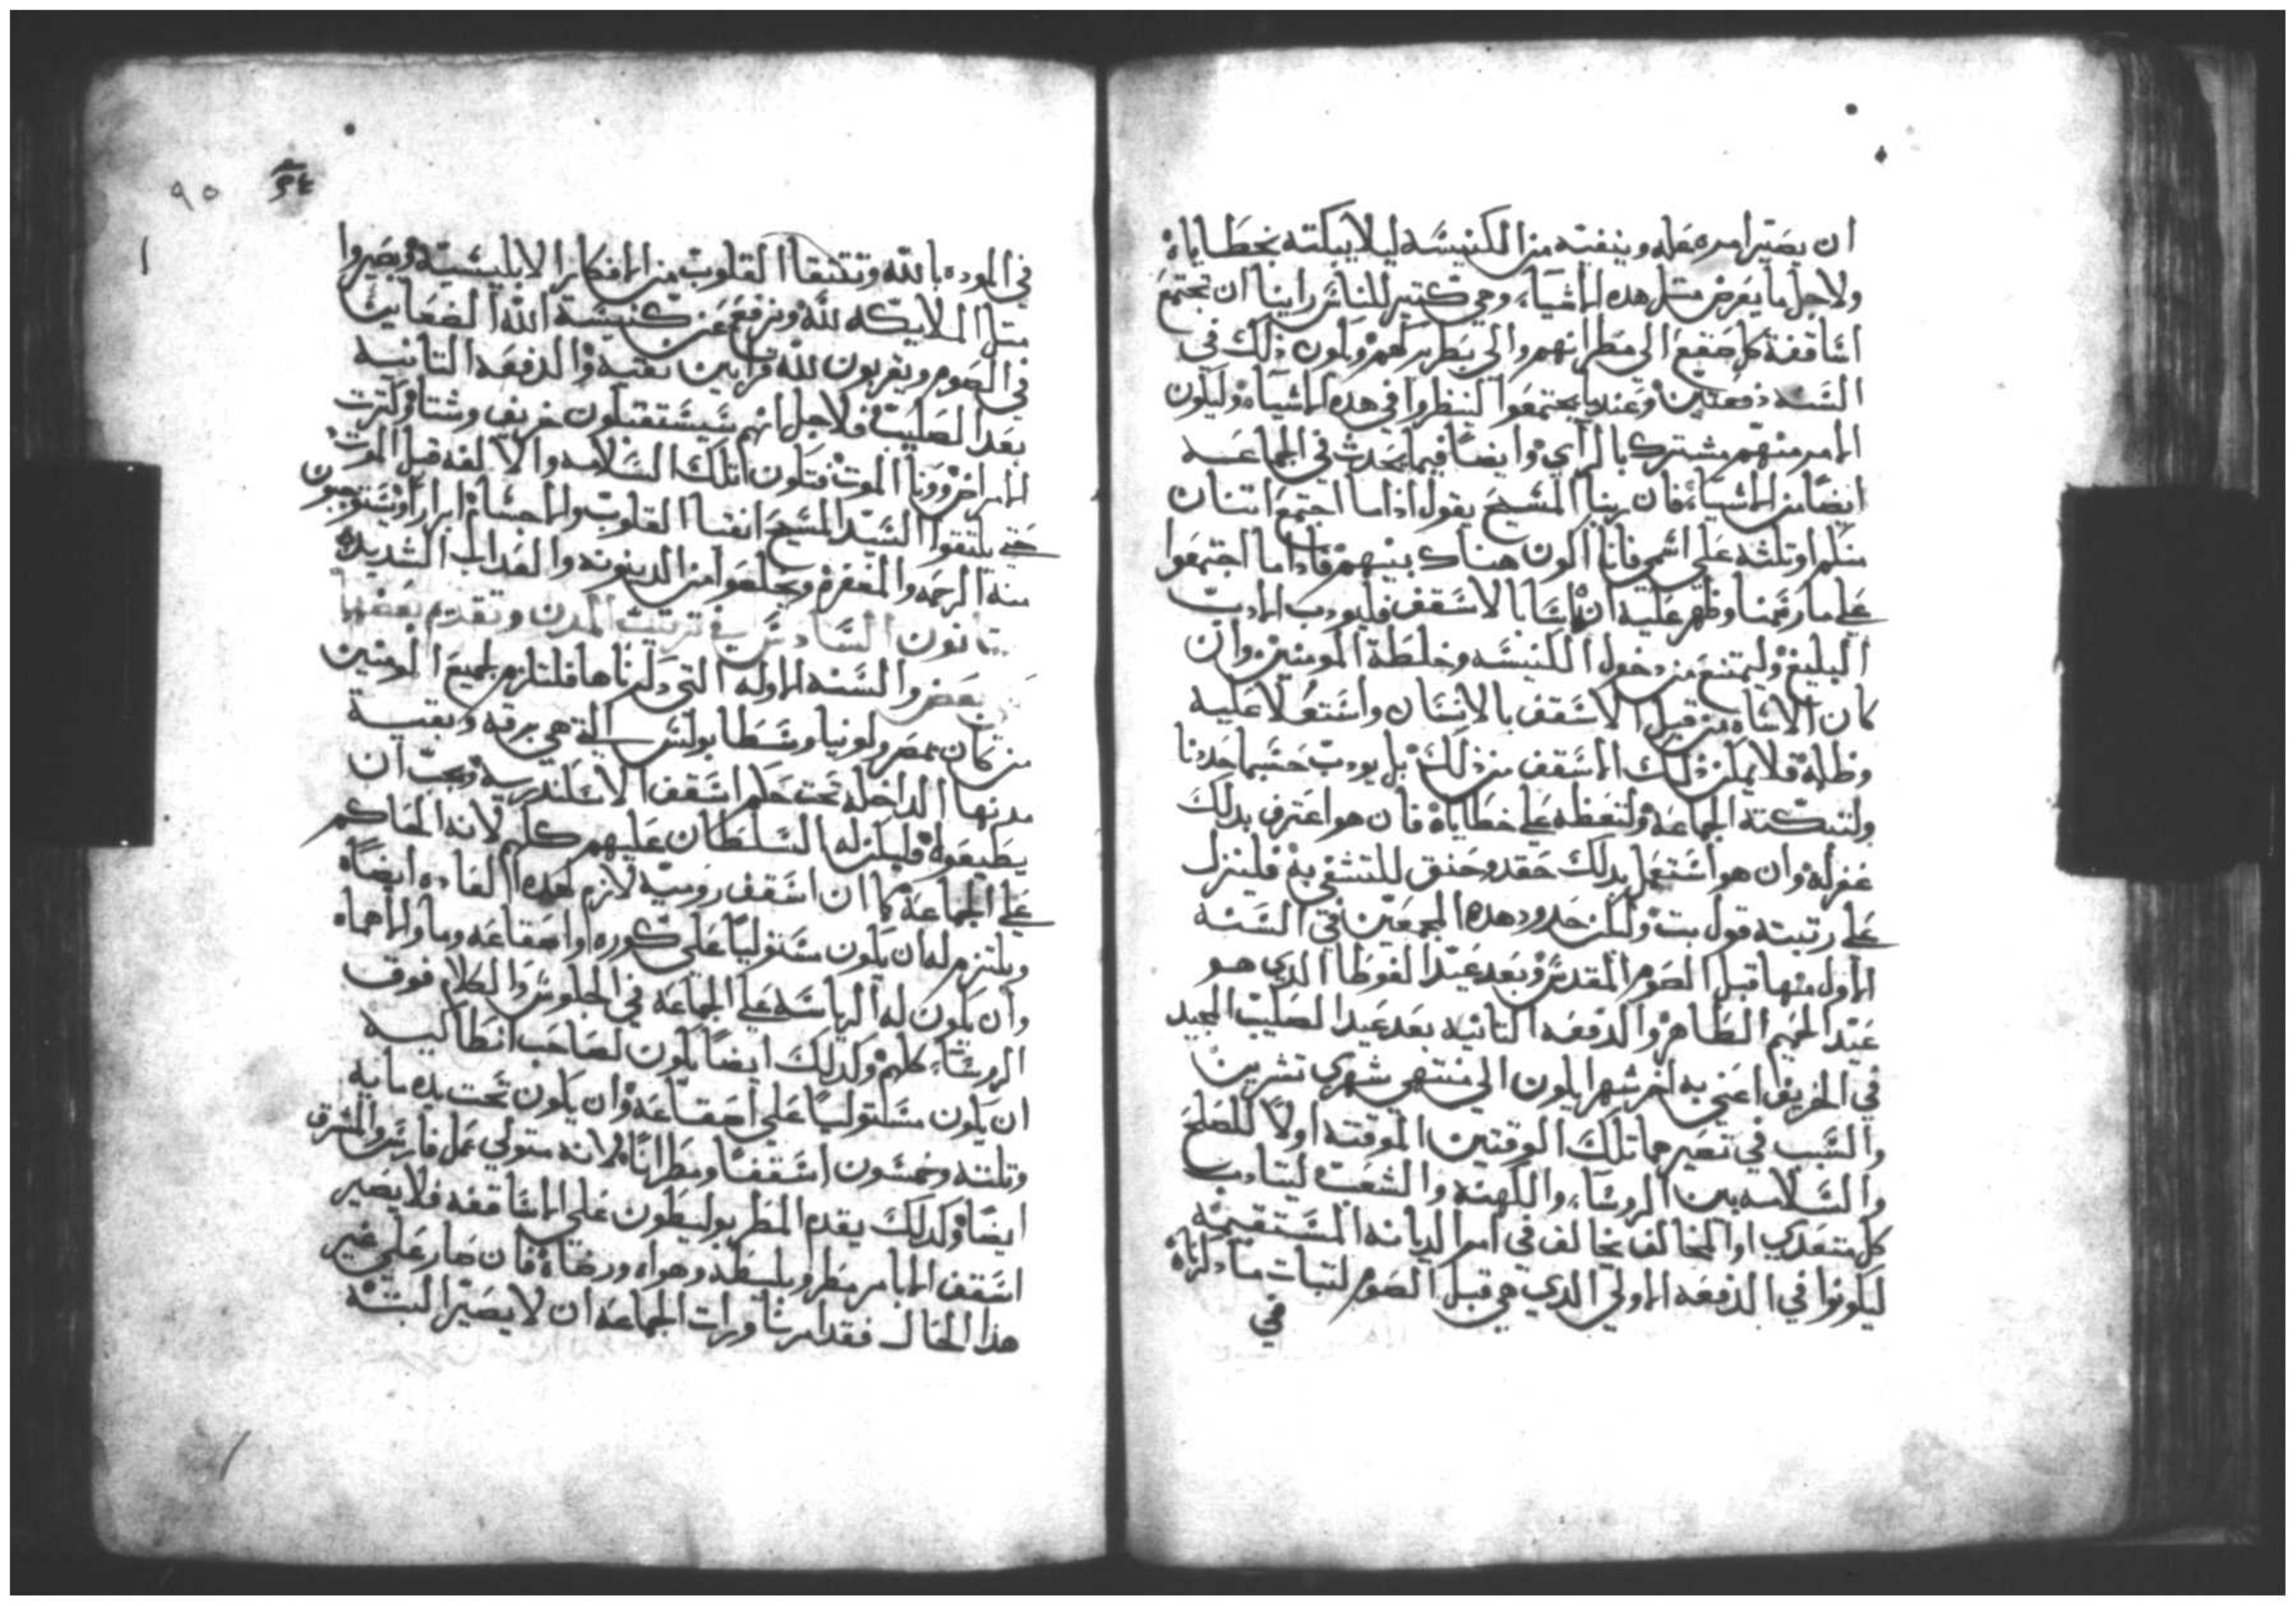 ان يصير امره فعله وينفيه من الكنيسه ليلا يبكته بخطاياه
ولاجل ما يعرض مثل هده الاشياء وهي كتير للناس راينا ان تجتمع
اساقفة كل صقع الي مطرانهم والي بطريركهم ويكون ذلك في
السنه دفعتين وعندما يجتمعوا لينظروا في هده الاشياء وليكون
الامر منهم مشترك بالراي وايضا فيما يحدث في الجماعه
ايضا من الاشياء فان ربنا المسيح يقول اذا ما اجتمع اتنان
منكم او تلثه علي اسمي فانا اكون هناك بينهم فاداما اجتمعوا
علي ما رسمنا وظهر عليه انه اسا بالاسقف فليودب الادب
البليغ وليمتنع من دخول الكنيسه وخلطة المومنين وان
كان الاساه من قبل الاسقف بالانسان واستعلا عليه
وظلمه فلا يمكن ذلك الاسقف من ذلك بل يودب حسبما حددنا
ولتبكته الجماعه ولتعظه علي خطاياه فان هو اعترف بدلك
غفر له وان هو استعمل بدلك حقد وحنق للتشفي به فلينزل
علي رتبته قول بت ولكن حدود هده المجمعين في السنه
الاول منها قبل الصوم المقدس وبعد عيد الغوطا الدي هو
عيد الحميم الطاهر والدفعه التانيه بعد عيد الصليب المجيد
في الخريف اعني به اخر شهر ايلون الي منتهي شهري تشرين
والسبب في تصيرها تلك الوقتين الموقته اولا للصلح
والسلامه بين الروساء والكهنه والشعب ليتادب
كل متعدي او المخالف يخالف في امر الديانه المستقيمه
ليكونوا في الدفعه الاولي الدي هي قبل الصوم لتبات ما دكرناه
في
٩٥
في الموده بالله وتتنقا القلوب من الافكار الابليسيه ويصيروا
متل الملايكه لله ونرفع عن كنيسة الله الضغاين
في الصوم ويقربون لله قرابين نقيه والدفعه التانيه
بعد الصليب فلاجل انهم سيستقبلون خريف وشتا وكترت
الامراض وونا الموت فتكون تلك السلامه والالفه قبل الموت
حتي يلتقوا السيد المسيح انقيا القلوب والاحشاء ابرار ويستوجبون
منه الرحمه والمغفره ويخلصوا من الدينونه والعداب الشديد
قانون السادس في ترتيب المدن وتقدم بعضها
بعض والسنه الاوله التي دكرناها فلتلزم لجميع المومنين
من كان بمصر ولونيا وسطا بولس التي هي برقه وبقية
مدنها الداخله تحت حكم اسقف الاسكندريه ويجب ان
يطيعوه فليكن له السلطان عليهم كلهم لانه الحاكم
علي الجماعه كما ان اسقف روميه لازم لهده العاده ايضاه
ويلتزم له ان يكون ستوليا علي كوره او اصقاعه وما والاهاه
وان يكون له الرياسه علي الجماعه في الجلوس والكلام فوق
الروساء كلهم وكدلك ايضا يكون لصاحب انطاكيه
ان يكون ستوليا علي اصقاعه وان يكون تحت يده مايه
وتلته وخمسون اسقفا ومطرانا لانه متولي عمل فارس والمشرق
ايضا وكدلك يقدم المطربوليطون علي الاساقفه فلا يصير
اسقف الا بامر مطروبليطه وهواه ورضاه فان صار علي غير
هدا الحال فقد امرنا ورات الجماعه ان لا يصير البته